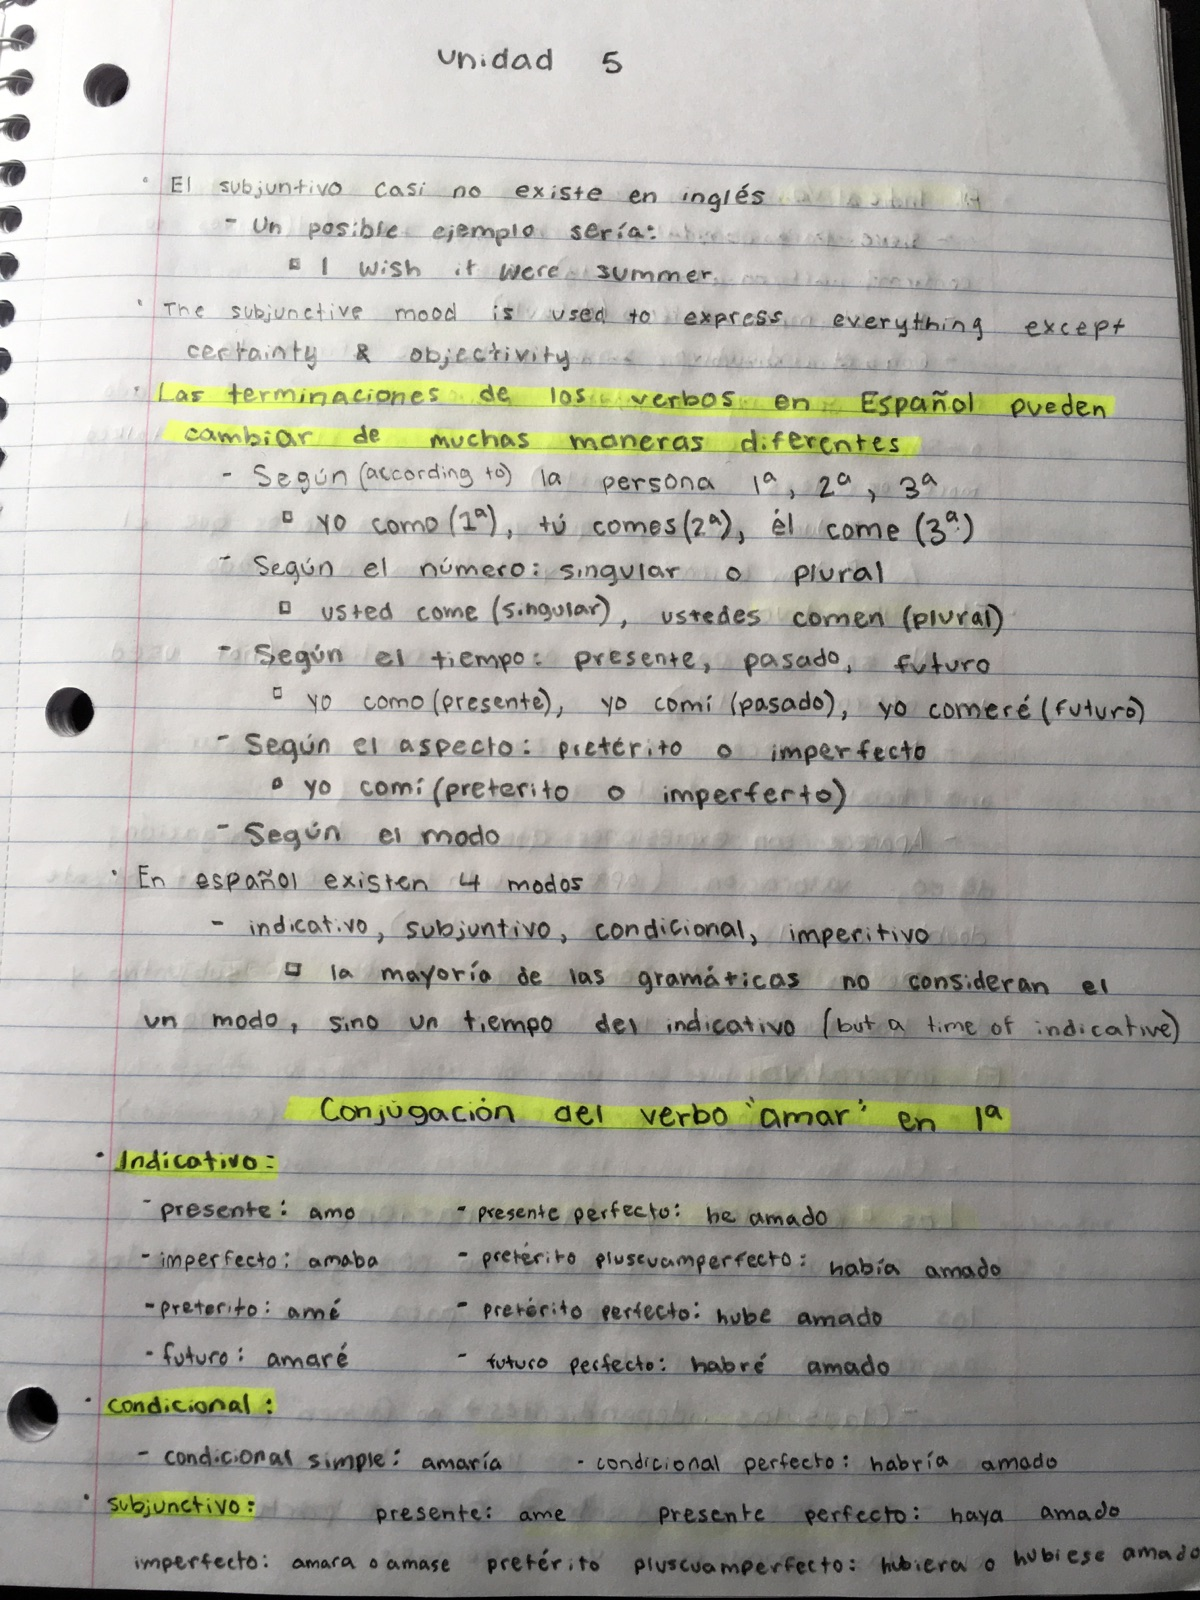 Unidad 5
• El subjuntivo casi no existe en inglés
- Un posible ejemplo sería:
▫ I wish it were summer
• The subjunctive mood is used to express everything except
certainty & objectivity
• Las terminaciones de los verbos en Español pueden
cambiar de muchas maneras diferentes
- Según (according to) la persona 1ª, 2ª, 3ª
▫ yo como (1ª), tú comes (2ª), él come (3ª)
- Según el número: singular o plural
▫ usted come (singular), ustedes comen (plural)
- Según el tiempo: presente, pasado, futuro
▫ yo como (presente), yo comí (pasado), yo comeré (futuro)
- Según el aspecto: pretérito o imperfecto
▫ yo comí (preterito o imperferto)
- Según el modo
• En español existen 4 modos
- indicativo, subjuntivo, condicional, imperitivo
▫ la mayoría de las gramáticas no consideran el
un modo, sino un tiempo del indicativo (but a time of indicative)
Conjugación del verbo "amar" en 1ª
• Indicativo:
- presente: amo - presente perfecto: he amado
- imperfecto: amaba - pretérito pluscuamperfecto: había amado
- preterito: amé - pretérito perfecto: hube amado
- futuro: amaré - futuro perfecto: habré amado
• condicional:
- condicional simple: amaría - condicional perfecto: habría amado
• subjunctivo: presente: ame presente perfecto: haya amado
imperfecto: amara o amase pretérito pluscuamperfecto: hubiera o hubiese amado